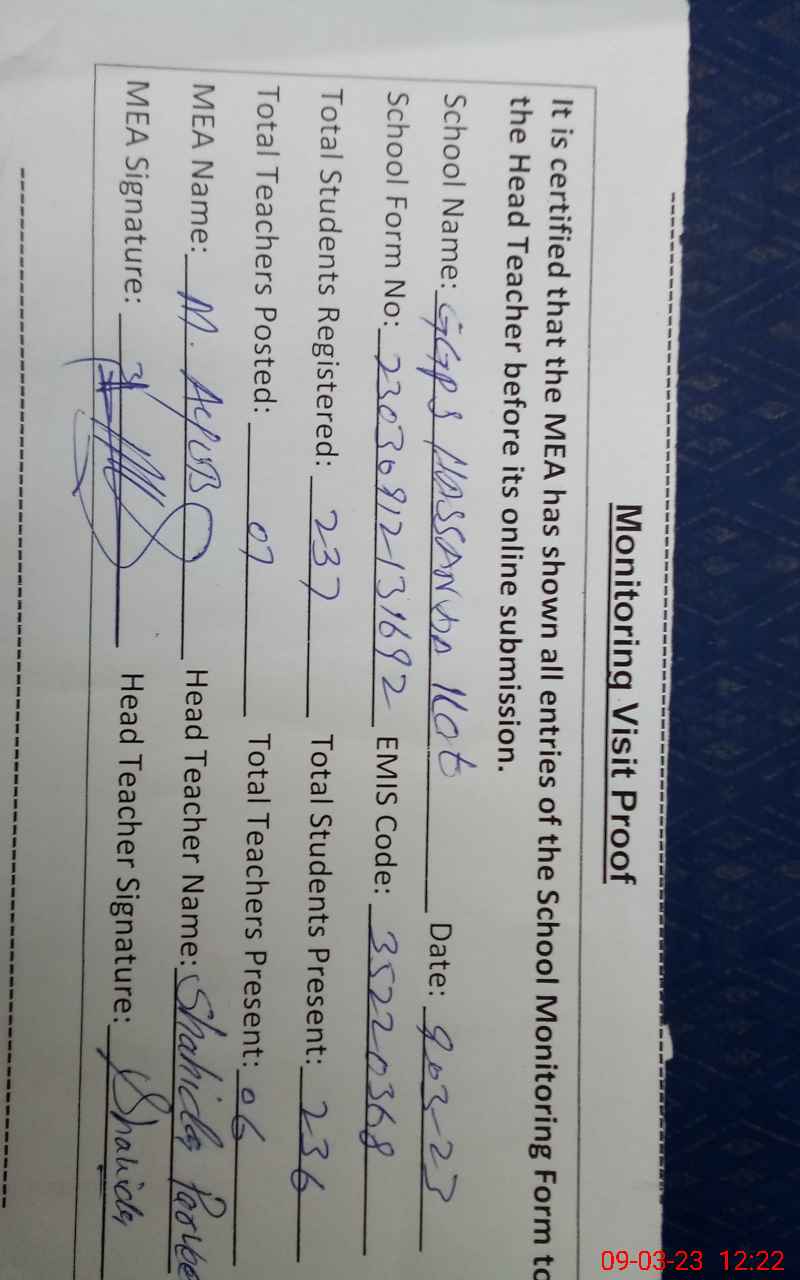 Monitoring Visit Proof
It is certified that the MEA has shown all entries of the School Monitoring Form to
the Head Teacher before its online submission.
School Name: GGPS HASSAN Kot Date: 9-03-23
School Form No: 23030912131692 EMIS Code: 35220368
Total Students Registered: 237 Total Students Present: 236
Total Teachers Posted: 07 Total Teachers Present: 06
MEA Name: M. AYUB Head Teacher Name: Shahida
MEA Signature: Head Teacher Signature: Shahida
09-03-23 12:22